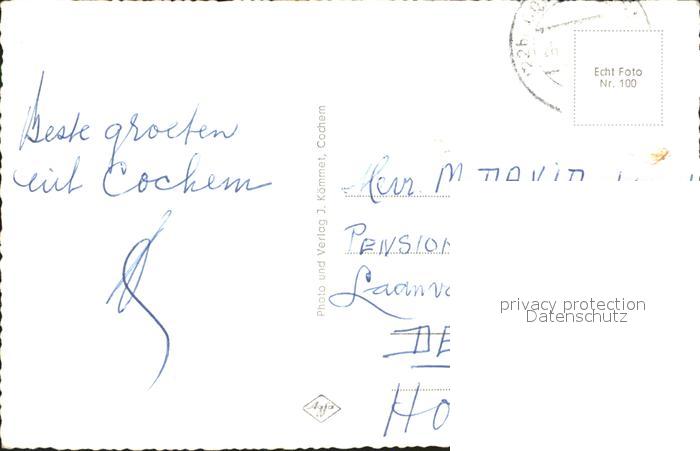 Beste groeten
uit Cochem
Photo und Verlag J. Kömmet, Cochem
Echt Foto
Nr. 100
Herr. M
PENSION
Laanv
DE
HO
privacy protection
Datenschutz
Agfa